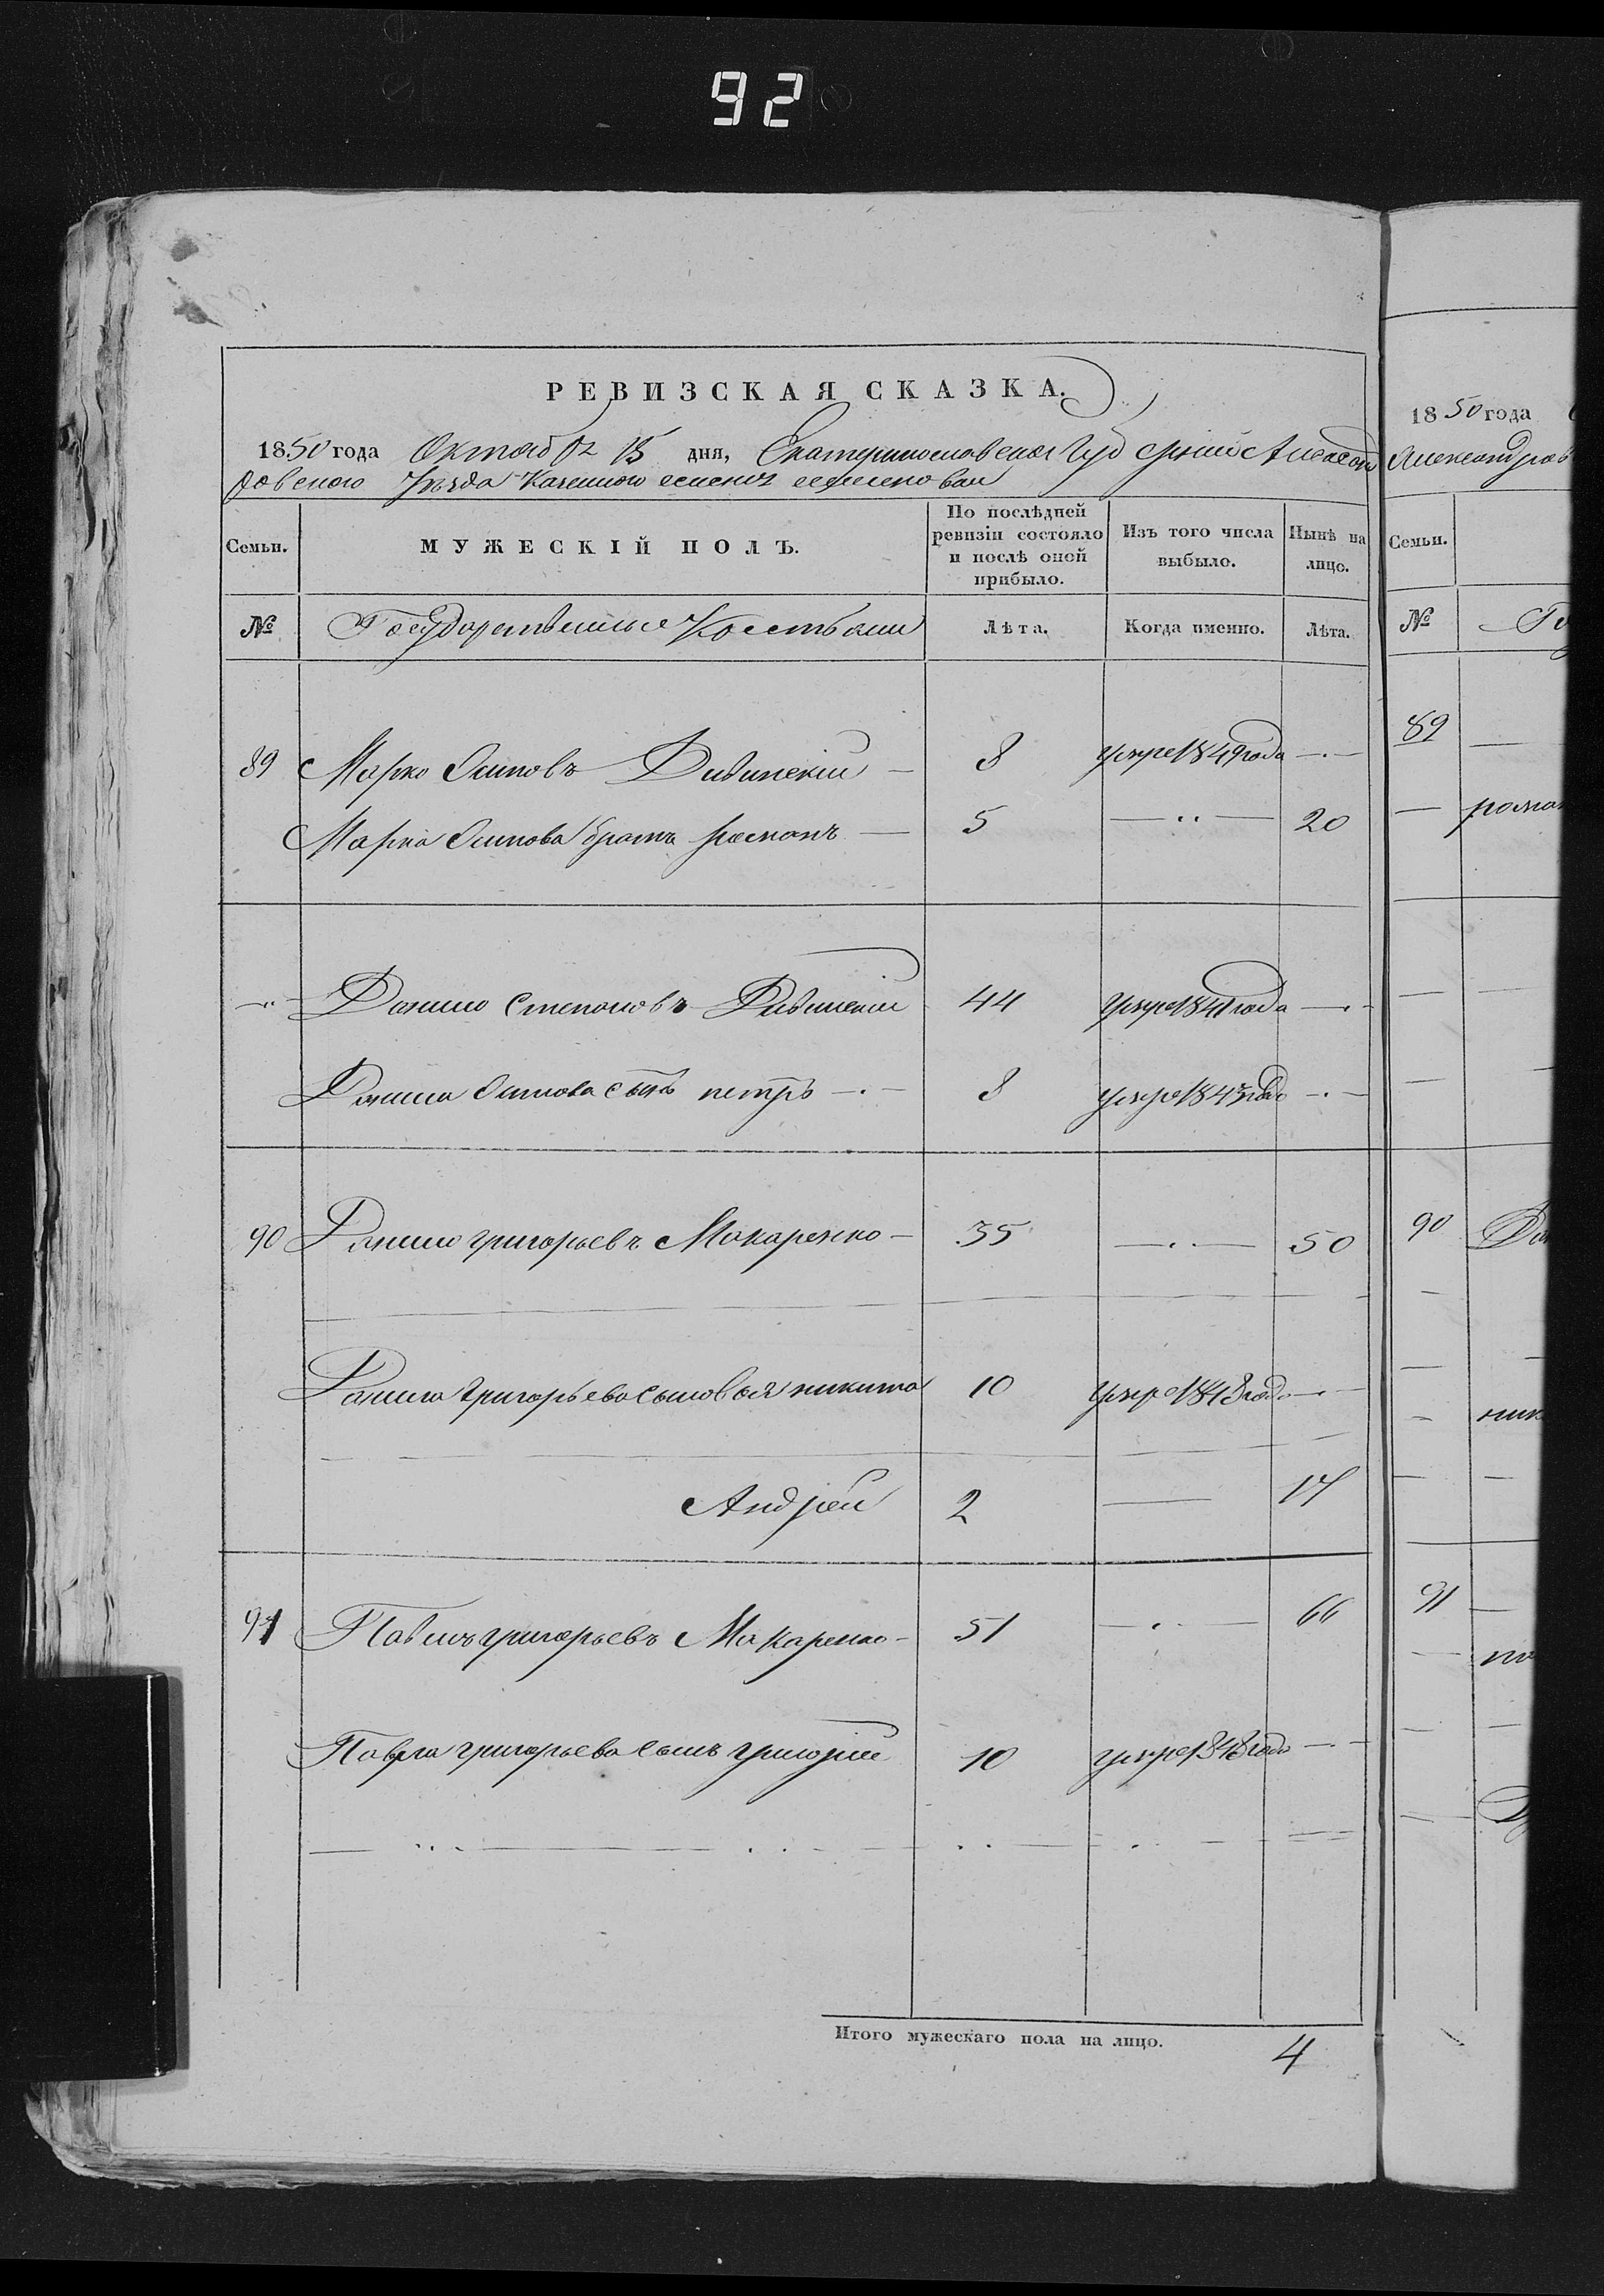 92
РЕВИЗСКАЯ СКАЗКА.
1850 года Октября 15 дня, Екатеринославской Губерніи Александ
ровского Уѣзда Казенного селенія
Семьи.
МУЖЕСКІЙ ПОЛЪ.
По послѣдней ревизіи состояло и послѣ оной прибыло.
Изъ того числа выбыло.
Нынѣ на лицо.
№ Государственные Лѣта. Когда именно. Лѣта.
89 Марко Осиповъ Дибинскій — 8 умре 1849 года —
Марка Осипова братъ романъ — 5 — 20
Данило Степановъ Дибинскій 44 умре 1841 года —
Данила Осипова сынъ петръ — 8 умре 184 года —
90 Данило григорьевъ Макаренко — 35 — 50
Данила Григорьева сыновья никита 10 умре 1848 года —
Андрей 2 — 17
91 Павелъ григорьевъ Макаренко — 51 — 66
Павла григорьева сынъ григорій 10 умре 1848 года —
Итого мужескаго пола на лицо. 4
1850 года
Александров
Семьи.
№ Го
89
роман
90 Дан
ник
91